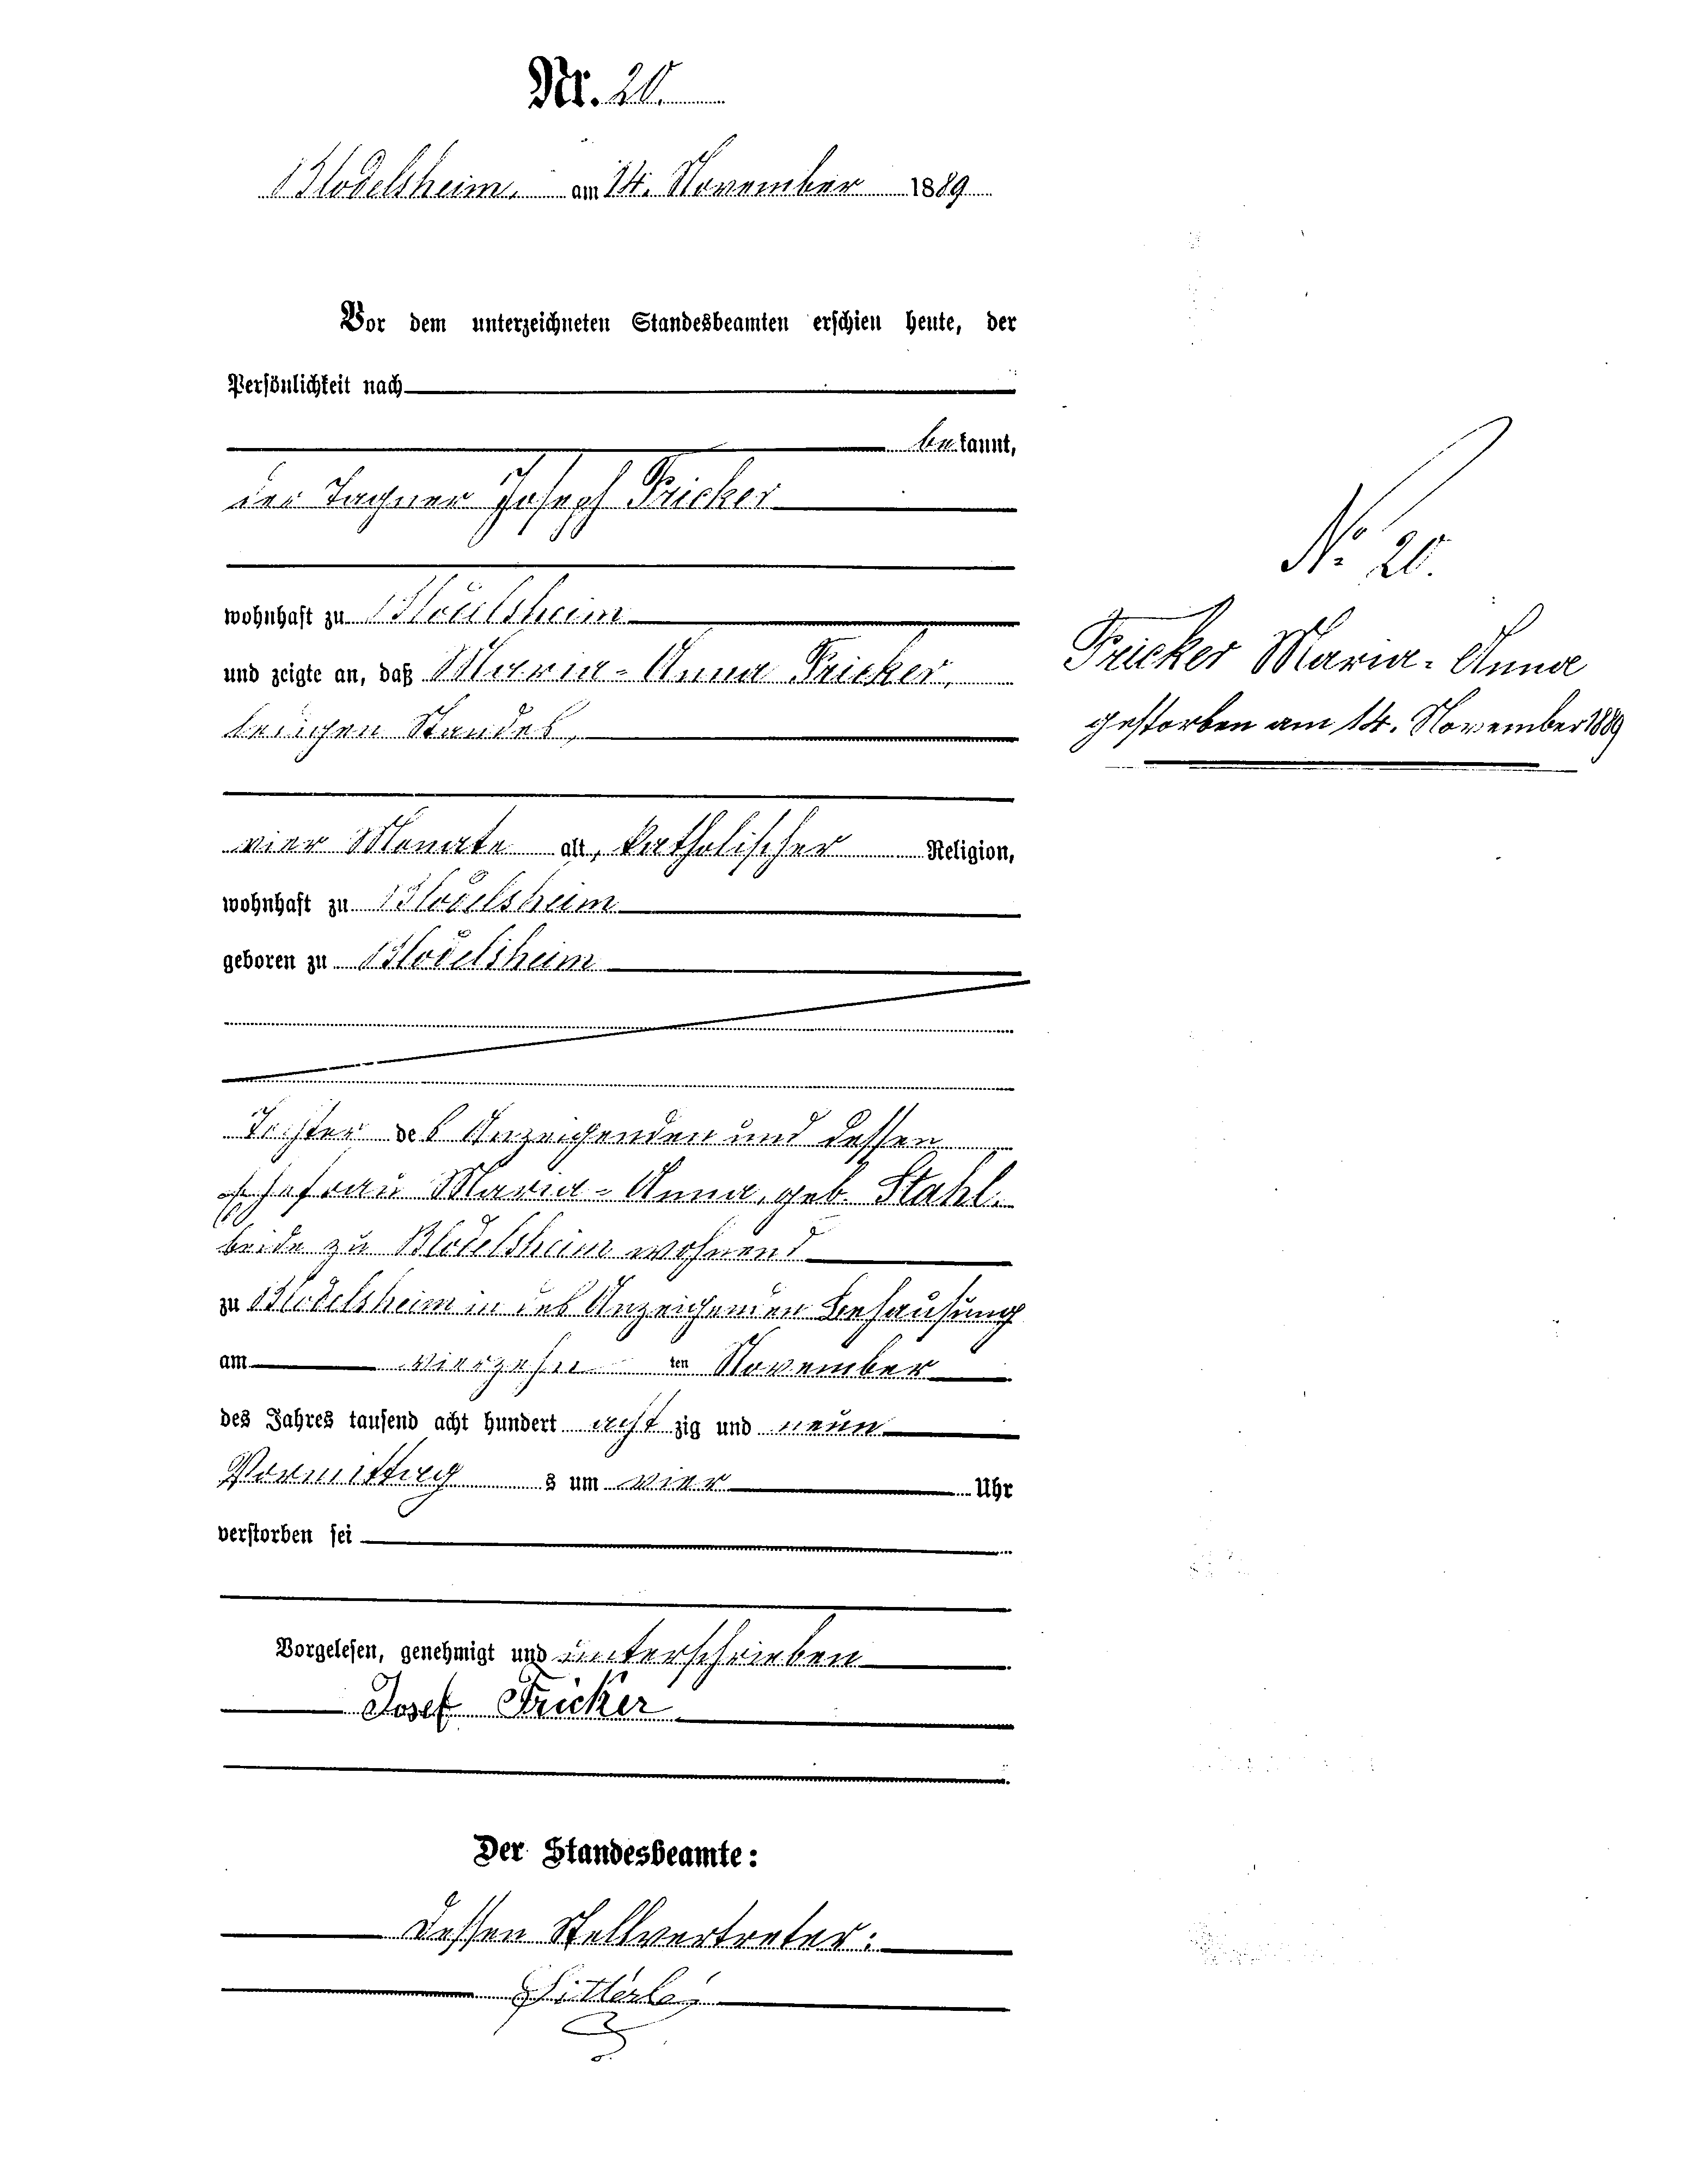 Nr. 20.
Blodelsheim, am 14. November 1889
Vor dem unterzeichneten Standesbeamten erschien heute, der
Persönlichkeit nach
bekannt,
der Tagner Joseph Fricker
wohnhaft zu Blodelsheim
und zeigte an, daß Maria-Anna Fricker,
ledigen Standes,
vier Monate alt, katholischer Religion,
wohnhaft zu Blodelsheim
geboren zu Blodelsheim
Tochter des Anzeigenden und dessen
Ehefrau Maria-Anna, geb. Stahl.
beide zu Blodelsheim wohnend
zu Blodelsheim in des Anzeigenden Behausung
am vierzehn ten November
des Jahres tausend acht hundert acht zig und neun
Vormittag s um vier Uhr
verstorben sei
Vorgelesen, genehmigt und unterschrieben
Josef Fricker
Der Standesbeamte:
Dessen Stellvertreter:
Sitterle
No 20.
Fricker Maria-Anna
gestorben am 14. November 1889